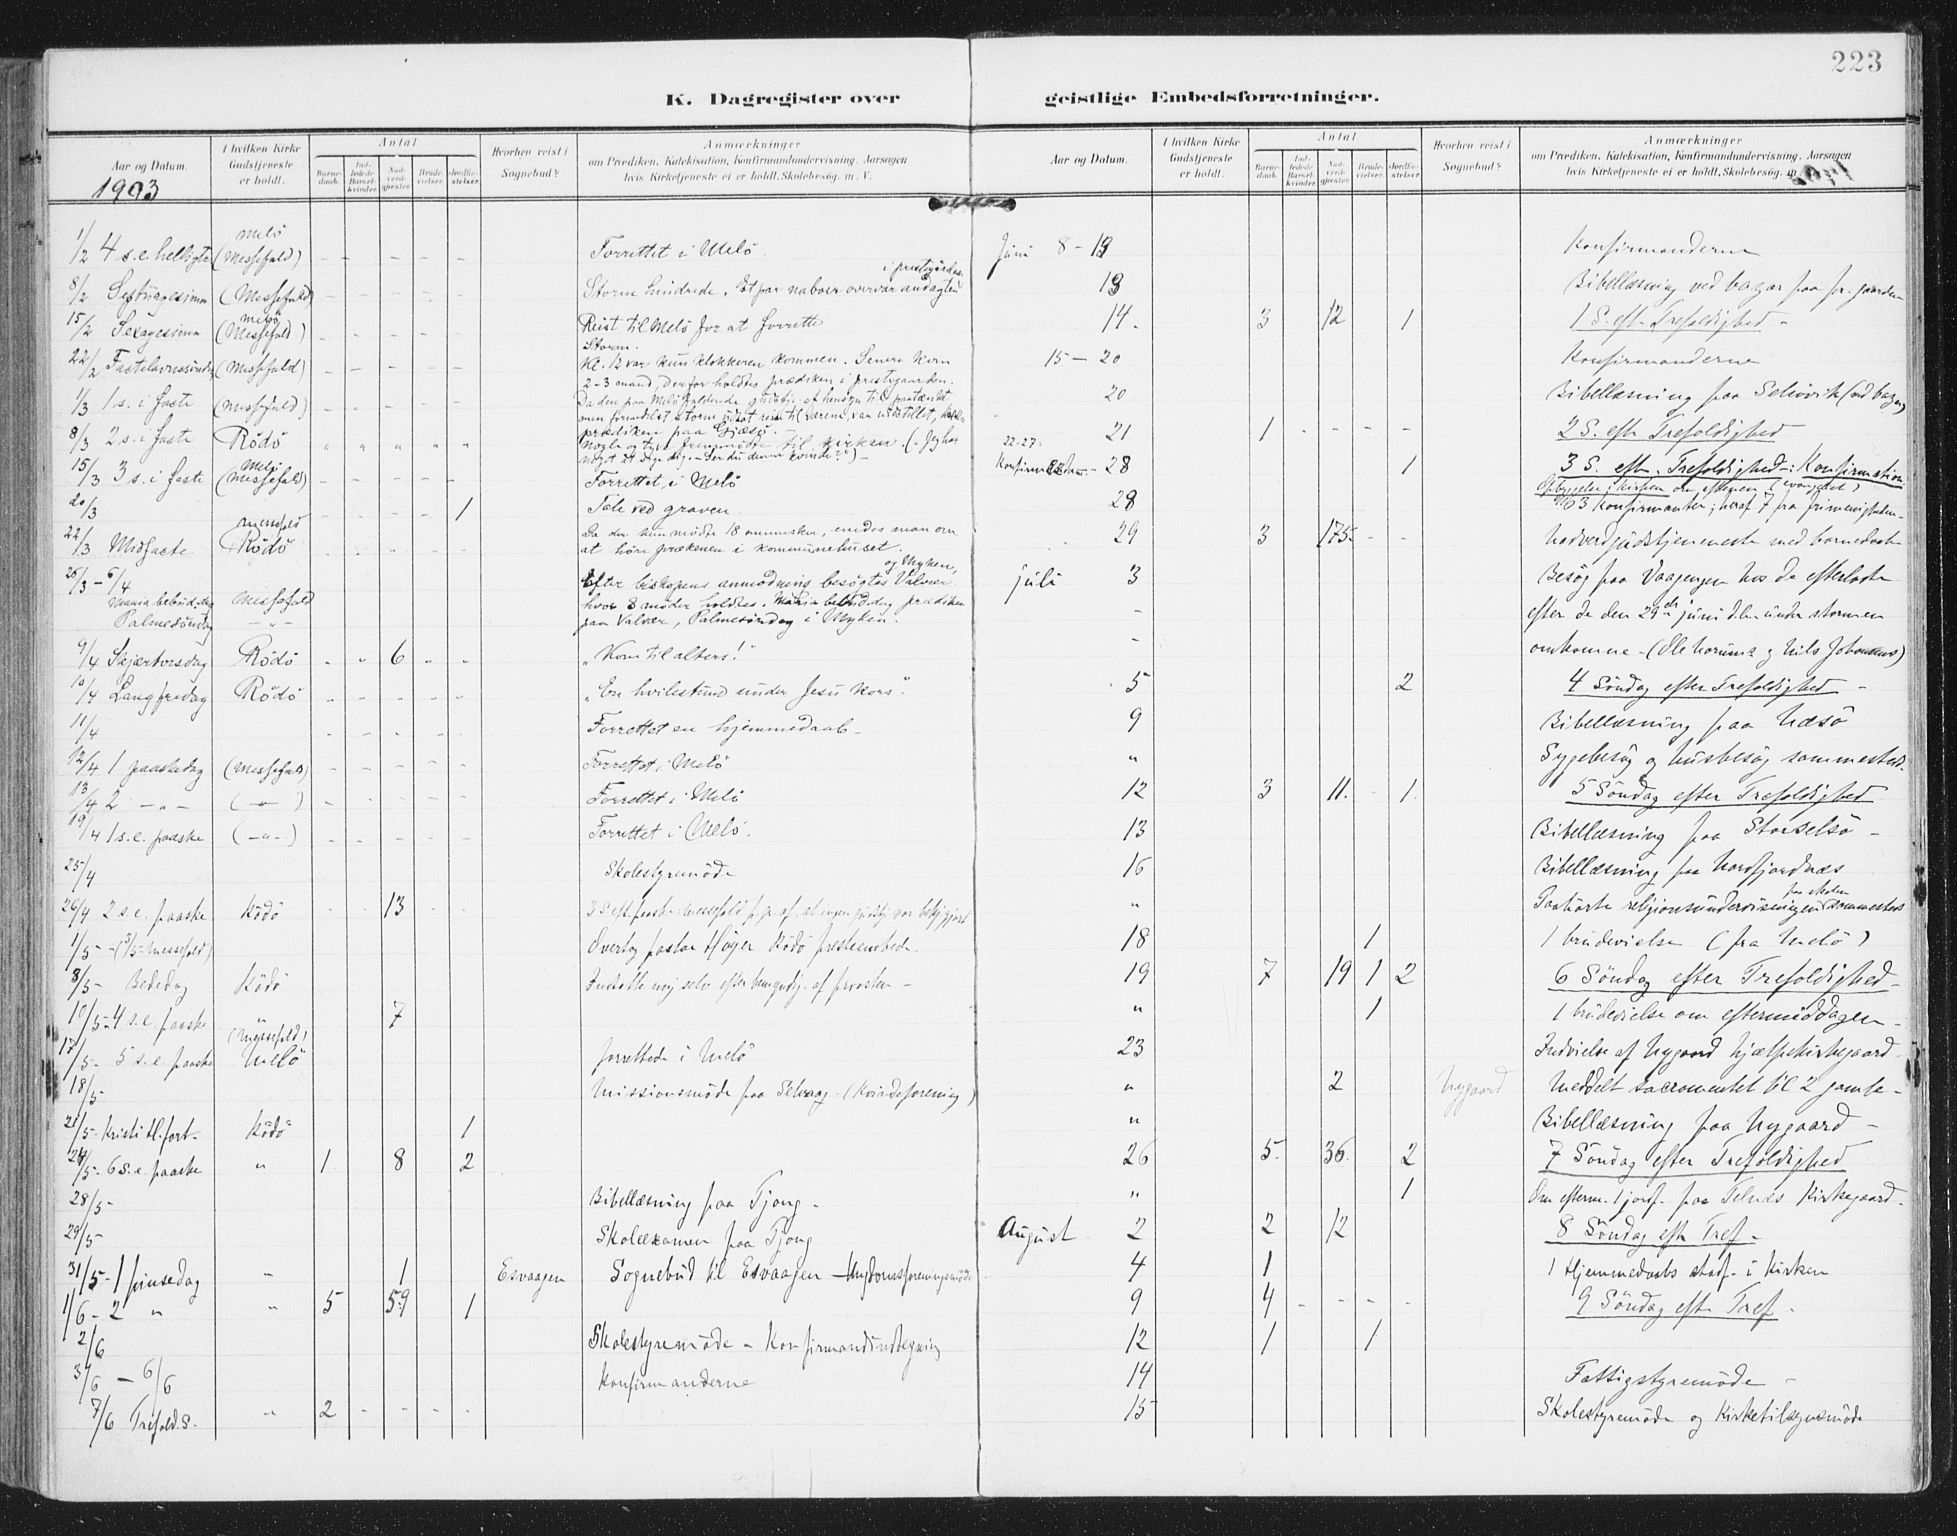 223
K. Dagregister over geistlige Embedsforretninger.
Aar og Datum. I hvilken Kirke Gudstjeneste er holdt. Antal Barnedaab. Indledede Barselkvinder. Nadverdgjester. Brudevielser. Jordfæstelser. Hvorhen reist i Sognebud? Anmærkninger om Prædiken, Katekisation, Konfirmandundervisning. Aarsagen hvis Kirketjeneste ei er holdt. Skolebesøg. m. V.
1903
1/2 4 s.e. helligtr (Messefald) Melö – – – – – Forrettet i Melö.
8/2 Septuagesima (Messefald) – – – – – Storm hindrede. Et par naboer overvar andagten i prestegården
15/2 Sexagesima (Messefald) Melö – – – – – Reist til Melö for at forrette
22/2 Fastelavnssöndag (Messefald) – – – – – Storm. Kl. 12 var kun klokkeren kommen. Senere kom
2-3 mand, derfor holdtes prædiken i prestegaarden.
1/3 1 s. i faste (Messefald) – – – – – Da den paa Melö faldende
8/3 2 s. i faste Rödö " " " " " prædiken paa Gjæsö.
15/3 3 s. i faste (Messefald) Melö – – – – – Forrettet i Melö
20/3 1 Tale ved graven.
22/3 Midfaste Messefald Rödö – – – – – Da der kun mödte 18 mennesker, enedes man om
at höre prækenen i kommunehuset.
25/3 – 6/4 Efter biskopens anmodning besögtes Valvær og Myken,
Maria bebud. dag Messefald hvor 8 möder holdtes. Maria bebud. dag prædiken
Palmesöndag – " – paa Valvær, Palmesöndag i Myken.
9/4 Skjærtorsdag Rödö – – 6 – – "Kom til alters!"
10/4 Langfredag Rödö – – – – – "En hvilestund under Jesu kors".
11/4 – – – – – Forrettet en hjemmedaab
12/4 1 paaskedag (Messefald) – – – – – Forrettet i Melö
13/4 2 – " – ( – " – ) – – – – – Forrettet i Melö
19/4 1 s.e. paaske ( – " – ) – – – – – Forrettet i Melö.
25/4 Skolestyremöde
26/4 2 s.e. paaske Rödö – – 13 – – 3 S. eft. paaske messefald p.gr. af, at ingen gudstj. var bekjgjort
1/5 – (3/5 messefald) Overtog pastor Höyer Rödö presteembede.
8/5 – Bededag Rödö Indsatte mig selv efter bemyndig. af provsten –
10/5 – 4 s.e. paaske " 7
17/5 – 5 s.e. paaske (Messefald) Melö forrettede i Melö
18/5 Missionsmöde paa Selvaag (Kvindeforening)
21/5 – Kristi H.fart – Rödö 1
24/5 – 6 s.e. paaske " 1 8 2
28/5 – Bibellæsning paa Tjong –
29/5 – Skoleexamen paa Tjong
31/5 – 1 pinsedag " 1 Esvaagen Sognebud til Esvaagen – Ungdomsforeningsmöde
1/6 – 2 " " 5 59 1
2/6 Skolestyremöde – Konfirmandindtegning
3/6 – 6/6 Konfirmanderne
7/6 Trefold. S. " 2 – – – –
Aar og Datum. I hvilken Kirke Gudstjeneste er holdt. Antal Barnedaab. Indledede Barselkvinder. Nadverdgjester. Brudevielser. Jordfæstelser. Hvorhen reist i Sognebud? Anmærkninger om Prædiken, Katekisation, Konfirmandundervisning. Aarsagen hvis Kirketjeneste ei er holdt. Skolebesøg. m
Juni 8 – 13 Konfirmanderne
13 Bibellæsning ved bazar paa pr. gaarden
14. 3 12 1 1 S. eft. Trefoldighed –
15 – 20 Konfirmanderne
20 Bibellæsning paa Selsövik (ved bazar)
21 1 – – – – 2 S. eft. Trefoldighed
22-27: Konfirmanderne – 28 1 3 S. eft. Trefoldighed – Konfirmation
28 63 Konfirmanter; heraf 7 fra frimenigheden –
29 3 175 – – Nadverdgudstjeneneste med barnedaab
Juli 3 Besög paa Vaagengen hos de efterladte
– efter de den 29de juni d.å. under stormen
– omkomne – (Ole Norums og Nils Johansens)
5 2 4 Söndag efter Trefoldighed –
9 Bibellæsning paa Næsö
" Sygebesög og husbesög sammesteds.
12 3 11. – 1. 5 Söndag efter Trefoldighed
13 Bibellæsning paa Storselsö –
16 Bibellæsning paa Nordfjordnæs
" Paahörte religionsundervisningen paa skolen sammesteds
18 1 1 brudevielse (fra Melö)
19 7 19 1 2 6 Söndag efter Trefoldighed –
" 1 1 brudevielse om eftermiddagen –
23 Indvielse af Nygaard hjælpekirkegaard
" 2 Nygaard Meddelt sacramentet til 2 gamle –
" Bibellæsning paa Nygaard –
26 5 36 2 7 Söndag efter Trefoldighed
" 1 Om efterm. 1 jordf. paa Telnes Kirkegaard –
August 2 2 12 8 Söndag eft. Tref –
4 1 1 Hjemmedaabs stadf. i Kirken
9 4 – – – – 9 Söndag eft. Tref –
12 1 1
14 Fattigstyremöde –
15 Skolestyremöde og Kirketilsynsmöde